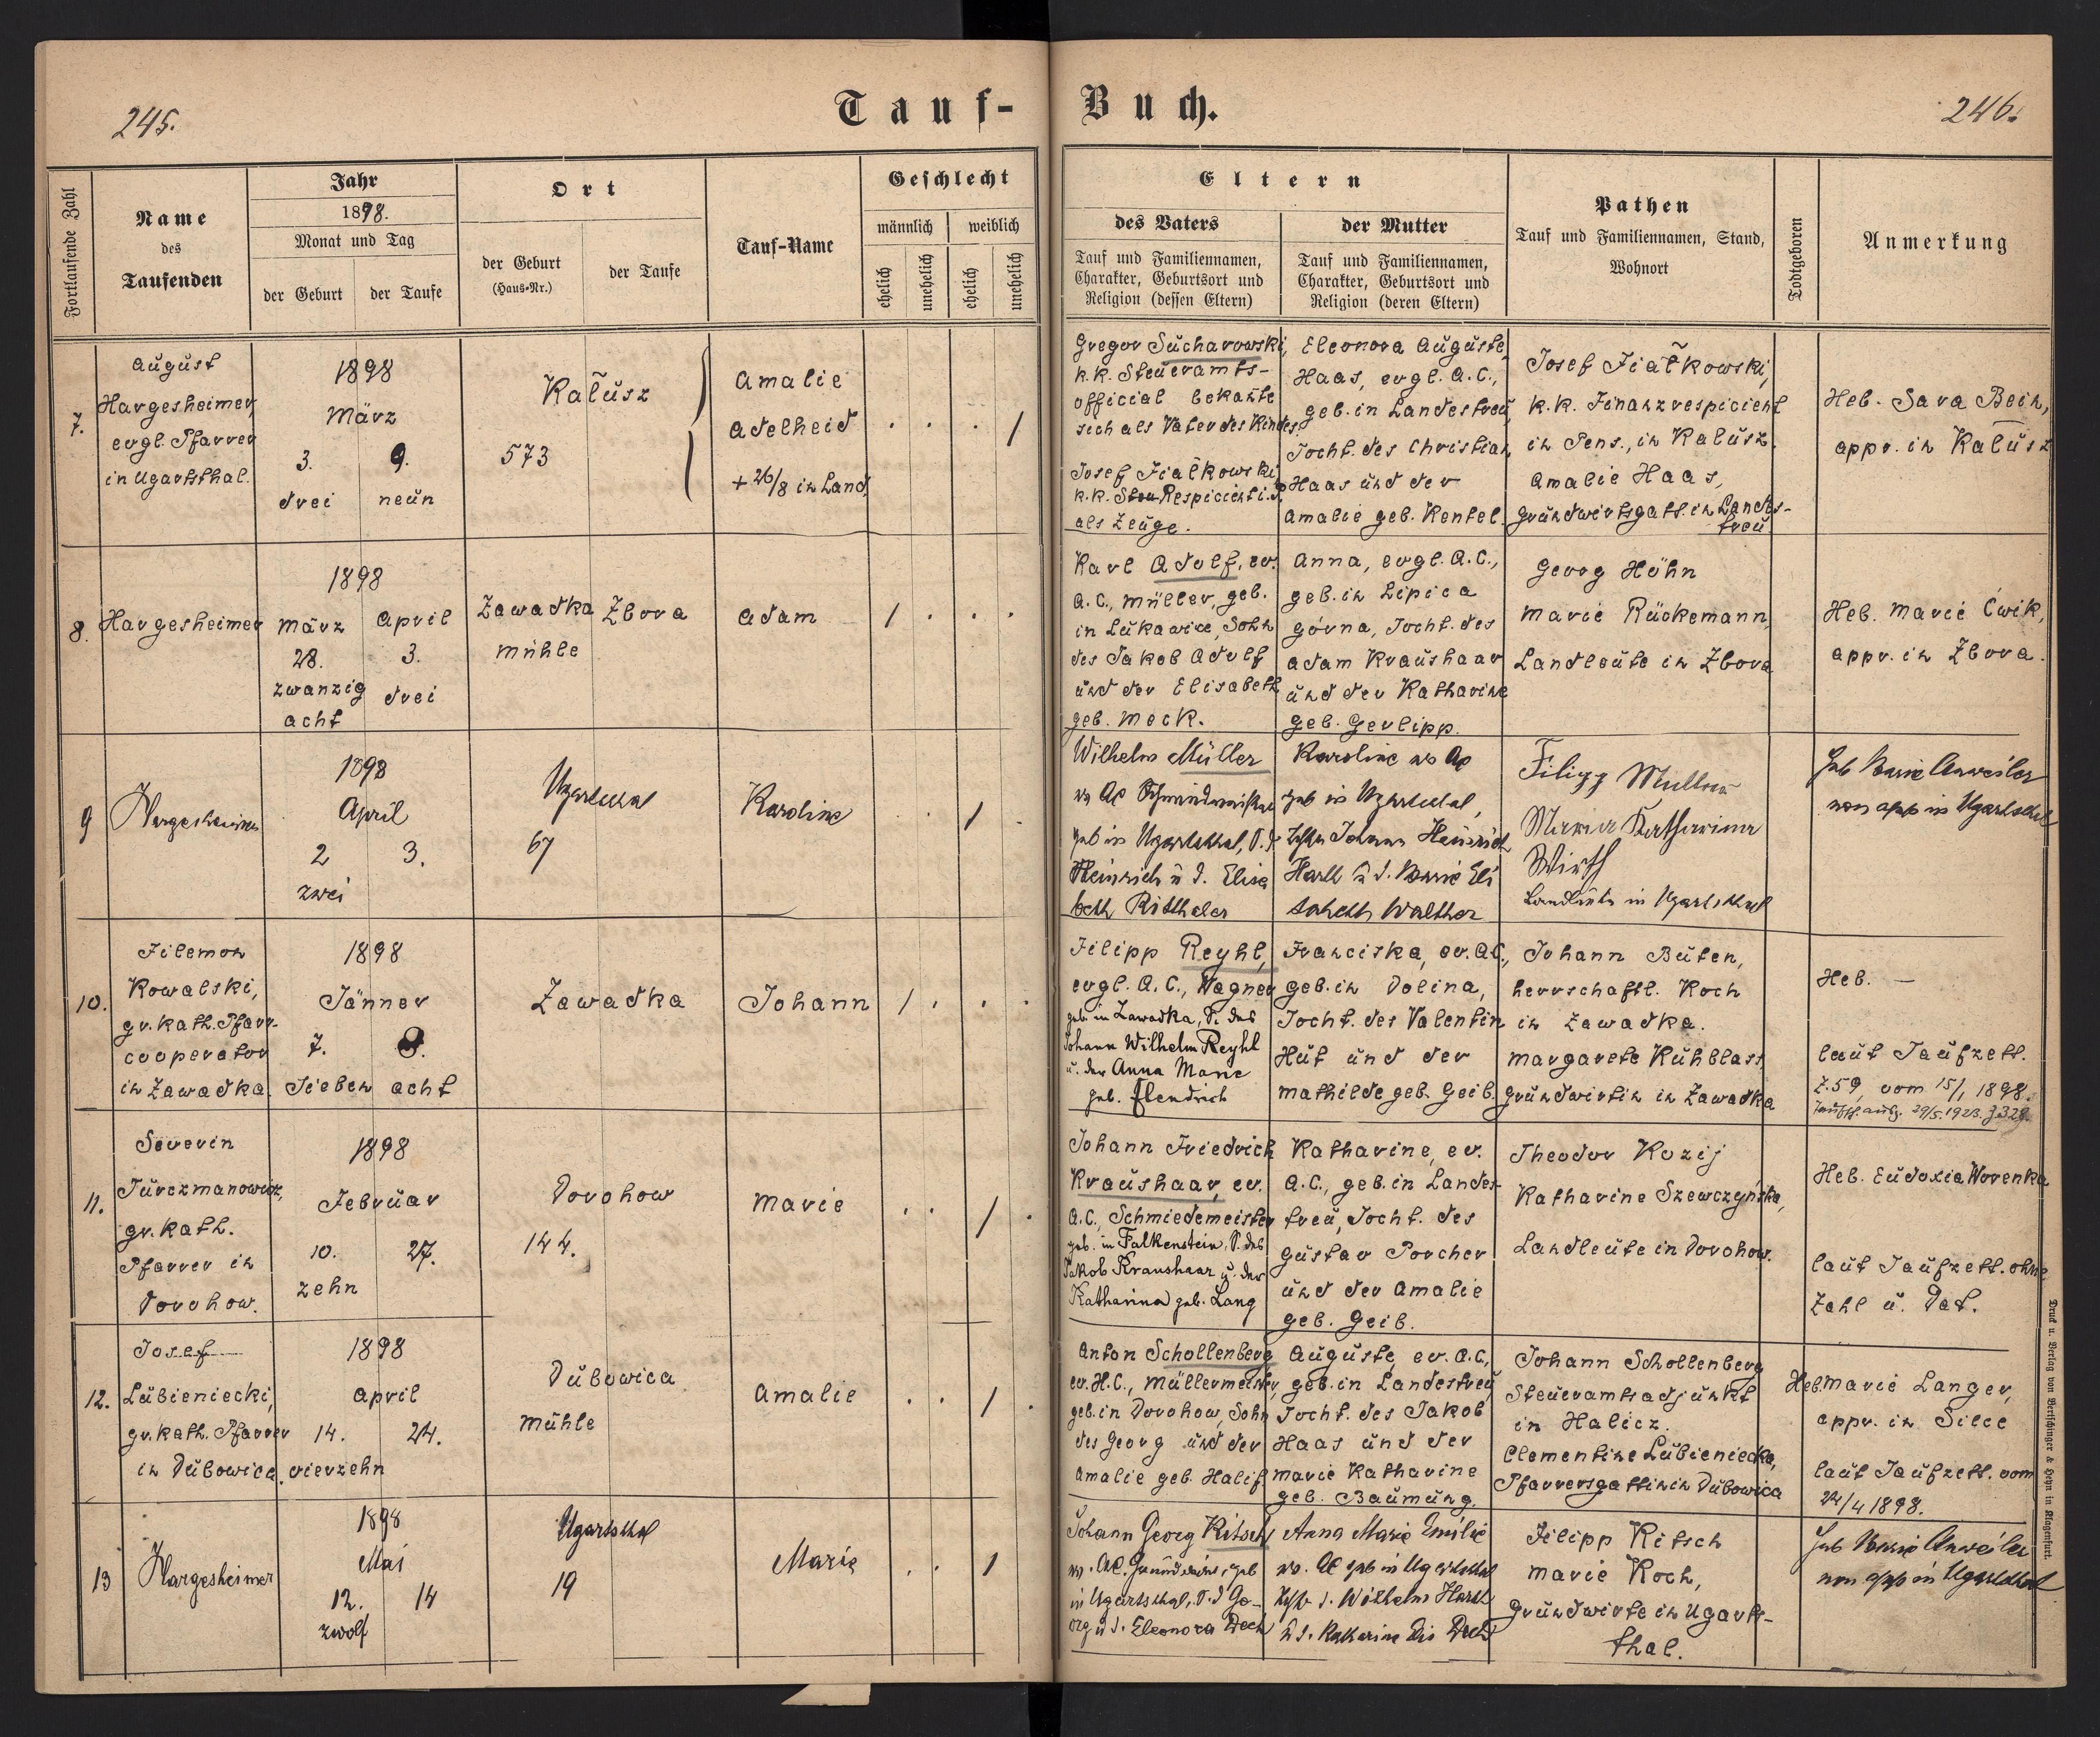 245.
Tauf-
Buch.
246.
Fortlaufende Zahl
Name
des
Taufenden
Jahr
1898.
Monat und Tag
der Geburt
der Taufe
Ort
der Geburt
(Haus-Nr.)
der Taufe
Tauf-Name
Geschlecht
männlich
weiblich
ehelich
unehelich
ehelich
unehelich
Eltern
des Vaters
Tauf und Familiennamen,
Charakter, Geburtsort und
Religion (dessen Eltern)
der Mutter
Tauf und Familiennamen,
Charakter, Geburtsort und
Religion (deren Eltern)
Pathen
Tauf und Familiennamen, Stand,
Wohnort
Todtgeboren
Anmerkung
7.
August
Hargesheimer,
evgl. Pfarrer
in Ugartsthal.
1898
März
3. 9.
drei neun
Kałusz
573
Amalie
Adelheid
+ 26/8 in Land
. . . /
Gregor Sucharowski,
k.k. Steueramts-
official bekannte
sich als Vater des Kindes.
Josef Fiałkowski
k.k. Respicient i. P.
als Zeuge.
Eleonora Auguste,
Haas, evgl. A.C.,
geb. in Landestreu,
Tocht. des Christian
Haas und der
Amalie geb. Kentel.
Josef Fiałkowski,
k.k. Finanzrespicient
in Pens., in Kałusz.
Amalie Haas,
Grundwirtsgatt. in Landes-
treu
Heb. Sara Bein,
appr. in Kałusz
8.
Hargesheimer
1898
März April
28. 3.
zwanzig drei
acht
Zawadka
mühle
Zbora
Adam
/ . . .
Karl Adolf, ev.
A.C., Müller, geb.
in Lukawice, Sohn
des Jakob Adolf
und der Elisabeth
geb. Mock.
Anna, evgl. A.C.,
geb. in Lipica
górna, Tocht. des
Adam Kraushaar
und der Katharine
geb. Gerlipp.
Georg Höhn
Marie Rückemann,
Landleute in Zbora
Heb. Marie Ćwik,
appr. in Zbora.
9
Hargesheimer
1898
April
2 3.
zwei
Ugartsthal
67
Karoline
. . / .
Wilhelm Müller
ev AC
geb in Ugartsthal, S. d.
Heinrich u d. Elisa
beth Ritthaler
Karoline ev AC
geb in Ugartsthal,
Johann Heinrich
Harth u d. Marie Eli
sabeth Walther
Filipp Muller
Maria Katharina
Wirth
Landleute in Ugartsthal
Heb Marie Anweiler
non appr in Ugartsthal
10.
Filemon
Kowalski,
gr. kath. Pfarr-
cooperator
in Zawadka.
1898
Jänner
7. 8.
sieben acht
Zawadka
Johann
/ . . .
Filipp Reyhl,
evgl. A.C., Wagner
geb. in Zawadka, S. des
Johann Wilhelm Reyhl
u. der Anna Marie
geb. Hendrich
Franciska, ev. A.C.,
geb. in Dolina,
Tocht. des Valentin
Hut und der
Mathilde geb. Geib.
Johann Buten,
herrschaftl. Koch
in Zawadka.
Margarete Kuhblass,
Grundwirtin in Zawadka
Heb. —
laut Taufzett.
Z. 59, vom 15/1 1898.
29/5. 1923.
11.
Severin
Jurczmanowicz,
gr. kath.
Pfarrer in
Dorohow.
1898
Februar
10. 27.
zehn
Dorohow
144.
Marie
. . / .
Johann Friedrich
Kraushaar, ev.
A.C., Schmiedemeister
geb. in Falkenstein, S. des
Jakob Kraushaar u. der
Katharina geb. Lang
Katharine, ev.
A.C., geb. in Landes-
treu, Tocht. des
Gustav Porcher
und der Amalie
geb. Geib.
Theodor Kozij
Katharine Szewczyńska,
Landleute in Dorohow.
Heb. Eudoxia Worenka
laut Taufzett. ohne
Zahl u. Dat.
12.
Josef
Lubieniecki,
gr. kath. Pfarrer
in Dubowica.
1898
April
14. 24.
vierzehn
Dubowica
Mühle
Amalie
. . / .
Anton Schollenberg
ev. H.C., Müllermeister,
geb. in Dorohow, Sohn
des Georg und der
Amalie geb. Halif.
Auguste, ev. A.C.,
geb. in Landestreu
Tocht. des Jakob
Haas und der
Marie Katharine
geb. Baumung.
Johann Schollenberg
Steueramtsadjunkt
in Halicz.
Clementine Lubieniecka,
Pfarrersgattin in Dubowica
Heb. Marie Langer,
appr. in Siłce
laut Taufzett. vom
24/4 1898.
13
Hargesheimer
1898
Mai
12. 14
zwolf
Ugartsthal
19
Marie
. . /
Johann Georg Kitsch
ev. AC. Grundwirt, geb
in Ugartsthal, S. d Ge-
org u d. Eleonora Dech
Anna Marie Emilie
ev. AC geb in Ugartsthal
d. Wilhelm Harth
u d. Katharine Dech
Filipp Kitsch
Marie Koch,
Grundwirte in Ugarts-
thal.
Heb Marie Anweiler
non appr in Ugartsthal
Druck u. Verlag von Bertschinger & Heyn in Klagenfurt.